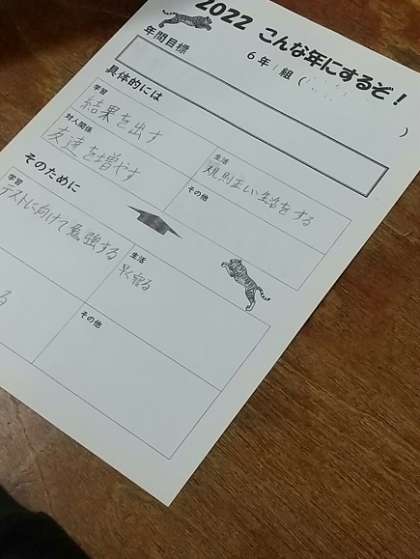 2022 こんな年にするぞ！
6年1組（
）
年間目標
具体的には
学習
結果を出す
生活
規則正しい生活をする
対人関係
友達を増やす
その他
そのために
学習
テストに向けて勉強する
生活
早く寝る
る
その他